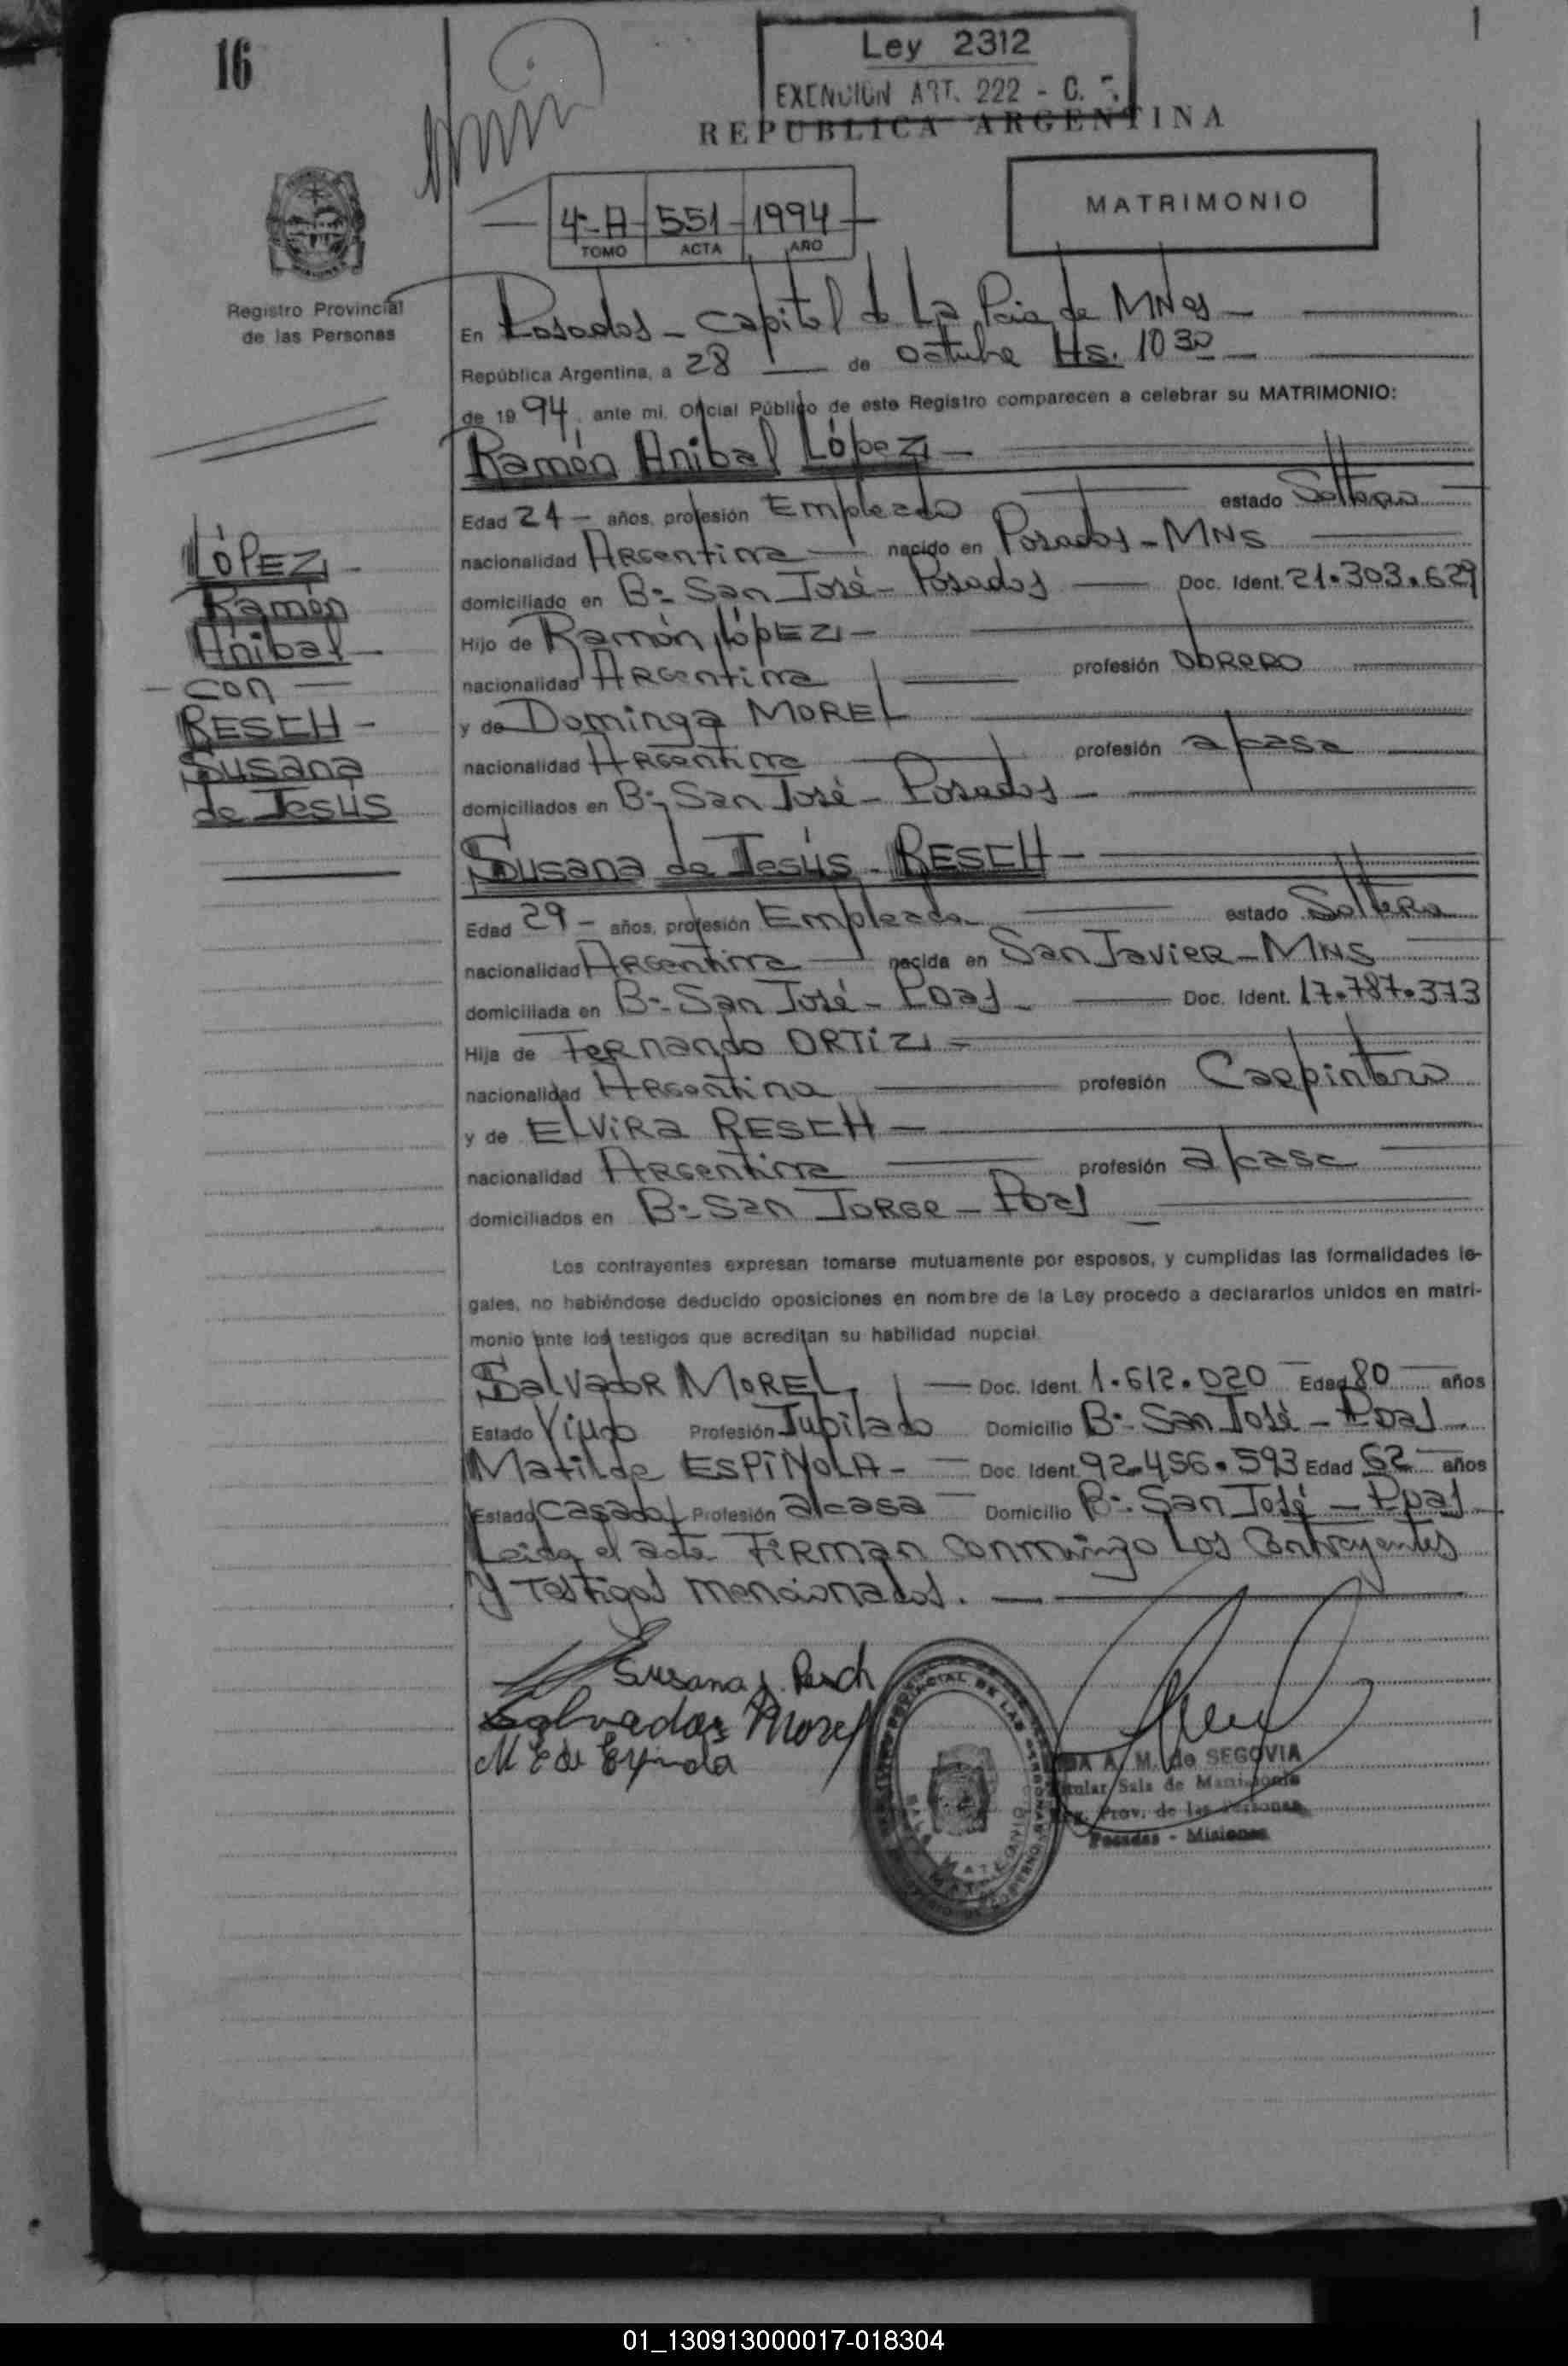 16
Ley 2312
EXENCION ART. 222 - C.
REPUBLICA ARGENTINA
4-A 551 1994
TOMO ACTA AÑO
MATRIMONIO
Registro Provincial
de las Personas
En Posadas - Capital de La Pcia de MNES
República Argentina, a 28 de octubre Hs. 10 30
de 1994, ante mi. Oficial Público de este Registro comparecen a celebrar su MATRIMONIO:
Ramón Anibal López
Edad 24 - años, profesión Empleado estado Soltero
nacionalidad Argentina nacido en Posadas - MNS
domiciliado en B:- San José - Posadas Doc. Ident. 21.303.629
Hijo de Ramón López -
nacionalidad Argentina profesión Obrero
y de Dominga MOREL
nacionalidad Argentina profesión a/casa
domiciliados en B:- San José - Posadas -
LÓPEZ -
Ramón
Anibal -
- con -
RESCH -
Susana
de Jesús
Susana de Jesús - RESCH -
Edad 29 - años, profesión Empleada estado Soltera
nacionalidad Argentina nacida en San Javier - MNS
domiciliada en B:- San José - Pdas - Doc. Ident. 17.787.373
Hija de Fernando ORTIZ -
nacionalidad Argentina profesión Carpintero
y de ELVIRA RESCH -
nacionalidad Argentina profesión a/casa
domiciliados en B:- San Jorge - Pdas -
Los contrayentes expresan tomarse mutuamente por esposos, y cumplidas las formalidades le-
gales, no habiéndose deducido oposiciones en nombre de la Ley procedo a declararlos unidos en matri-
monio ante los testigos que acreditan su habilidad nupcial.
Salvador MOREL, Doc. Ident. 1.612.020 Edad 80 años
Estado Viudo Profesión Jubilado Domicilio B:- San José - Pdas -
Matilde ESPINOLA - Doc. Ident. 92.456.593 Edad 62 años
Estado Casada Profesión a/casa Domicilio B:- San José - Pdas -
Leida el acta Firman conmigo Los Contrayentes
y Testigos mencionados.
Susana J. Resch
Salvador Morel
M E de Espinola
A. M. de SEGOVIA
Titular Sala de Matrimonio
Reg. Prov. de las Personas
Posadas - Misiones
01_130913000017-018304